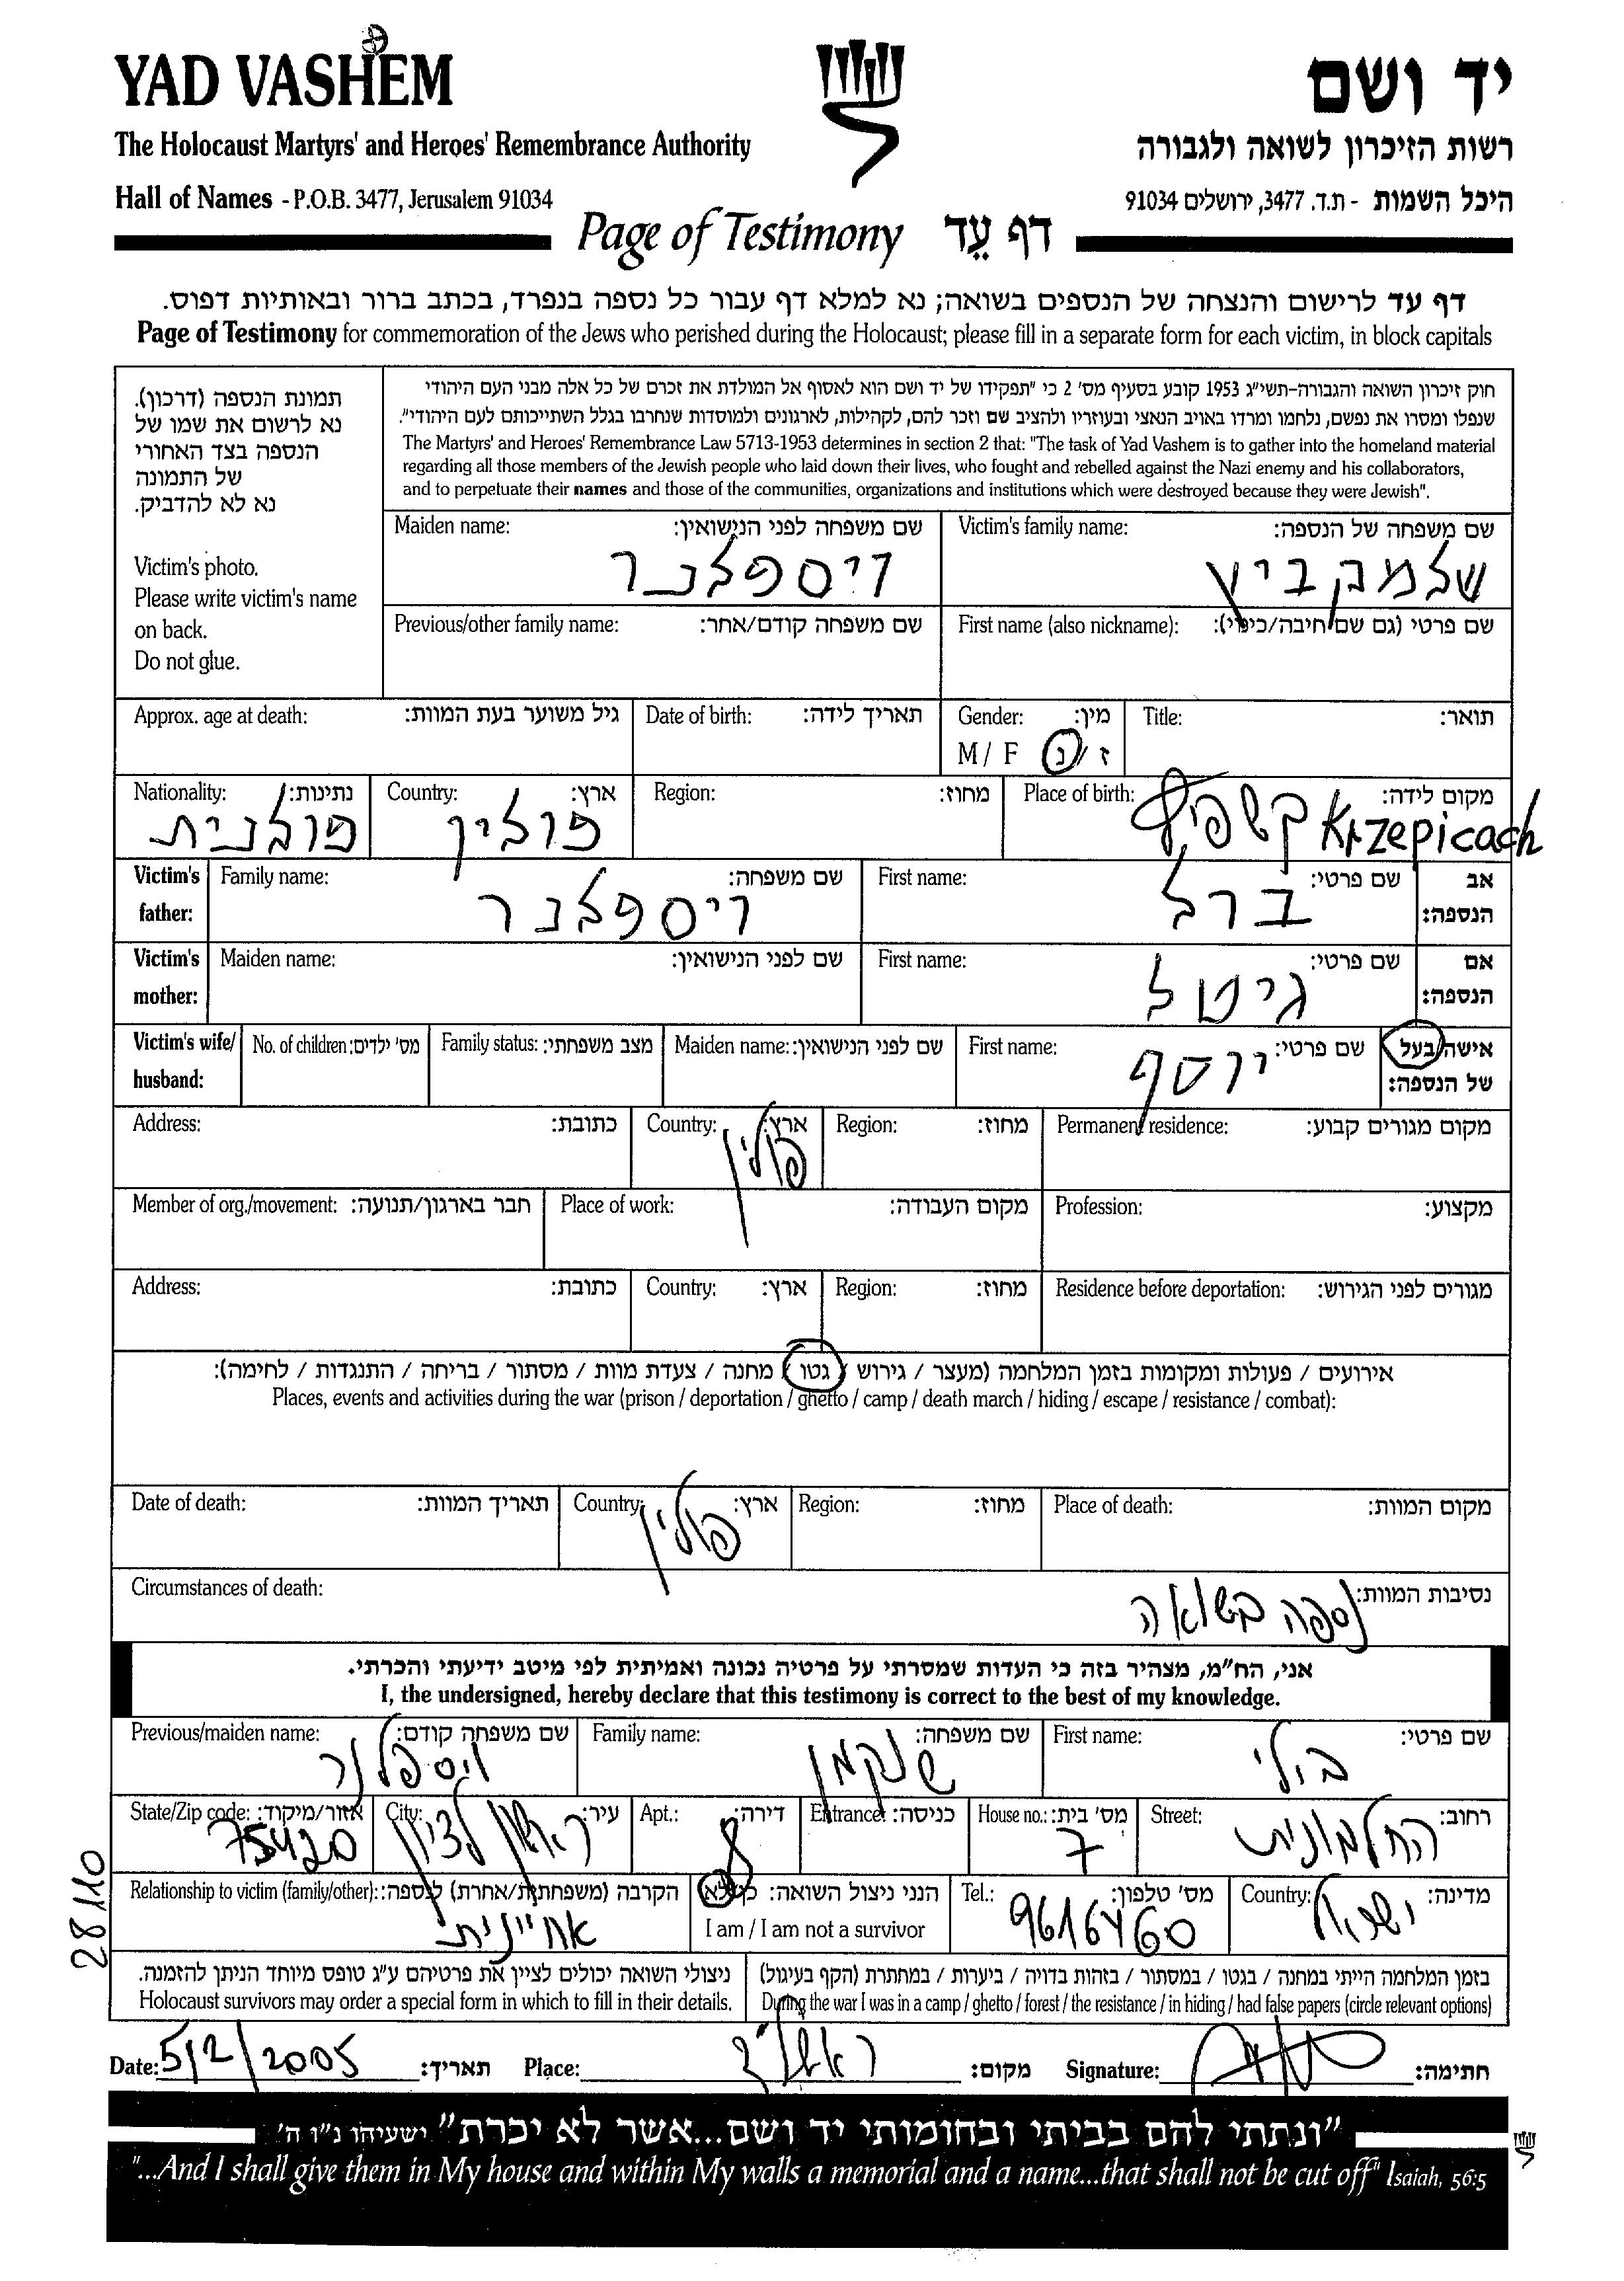 YAD VASHEM
יד ושם
The Holocaust Martyrs' and Heroes' Remembrance Authority
רשות הזיכרון לשואה ולגבורה
Hall of Names - P.O.B. 3477, Jerusalem 91034
היכל השמות - ת.ד. 3477, ירושלים 91034
Page of Testimony דף עֵד
דף עד לרישום והנצחה של הנספים בשואה; נא למלא דף עבור כל נספה בנפרד, בכתב ברור ובאותיות דפוס.
Page of Testimony for commemoration of the Jews who perished during the Holocaust; please fill in a separate form for each victim, in block capitals
תמונת הנספה (דרכון).
נא לרשום את שמו של
הנספה בצד האחורי
של התמונה
נא לא להדביק.
Victim's photo.
Please write victim's name
on back.
Do not glue.
חוק זיכרון השואה והגבורה-תשי"ג 1953 קובע בסעיף מס' 2 כי "תפקידו של יד ושם הוא לאסוף אל המולדת את זכרם של כל אלה מבני העם היהודי
שנפלו ומסרו את נפשם, נלחמו ומרדו באויב הנאצי ובעוזריו ולהציב שם וזכר להם, לקהילות, לארגונים ולמוסדות שנחרבו בגלל השתייכותם לעם היהודי".
The Martyrs' and Heroes' Remembrance Law 5713-1953 determines in section 2 that: "The task of Yad Vashem is to gather into the homeland material
regarding all those members of the Jewish people who laid down their lives, who fought and rebelled against the Nazi enemy and his collaborators,
and to perpetuate their names and those of the communities, organizations and institutions which were destroyed because they were Jewish".
Victim's family name: שם משפחה של הנספה:
שלמקביץ
Maiden name: שם משפחה לפני הנישואין:
ויספלנר
First name (also nickname): שם פרטי (גם שם חיבה/כינוי):
Previous/other family name: שם משפחה קודם/אחר:
Title: תואר:
Gender: מין:
M / F ז / נ
Date of birth: תאריך לידה:
Approx. age at death: גיל משוער בעת המוות:
Place of birth: מקום לידה:
קשפיץ Krzepicach
Region: מחוז:
Country: ארץ:
פולין
Nationality: נתינות:
פולנית
Victim's father: אב הנספה:
First name: שם פרטי:
ברל
Family name: שם משפחה:
ויספלנר
Victim's mother: אם הנספה:
First name: שם פרטי:
גיטל
Maiden name: שם לפני הנישואין:
Victim's wife/ husband: אישה/בעל של הנספה:
First name: שם פרטי:
יוסף
Maiden name: שם לפני הנישואין:
Family status: מצב משפחתי:
No. of children: מס' ילדים:
Permanent residence: מקום מגורים קבוע:
Region: מחוז:
Country: ארץ:
פולין
Address: כתובת:
Profession: מקצוע:
Place of work: מקום העבודה:
Member of org./movement: חבר בארגון/תנועה:
Residence before deportation: מגורים לפני הגירוש:
Region: מחוז:
Country: ארץ:
Address: כתובת:
אירועים / פעולות ומקומות בזמן המלחמה (מעצר / גירוש / גטו / מחנה / צעדת מוות / מסתור / בריחה / התנגדות / לחימה):
Places, events and activities during the war (prison / deportation / ghetto / camp / death march / hiding / escape / resistance / combat):
Place of death: מקום המוות:
Region: מחוז:
Country: ארץ:
פולין
Date of death: תאריך המוות:
Circumstances of death: נסיבות המוות:
נספה בשואה
אני, הח"מ, מצהיר בזה כי העדות שמסרתי על פרטיה נכונה ואמיתית לפי מיטב ידיעתי והכרתי.
I, the undersigned, hereby declare that this testimony is correct to the best of my knowledge.
First name: שם פרטי:
בולי
Family name: שם משפחה:
שנקמן
Previous/maiden name: שם משפחה קודם:
ויספלנר
Street: רחוב:
החלמונית
House no.: מס' בית:
7
Entrance: כניסה:
Apt.: דירה:
8
City: עיר:
ראשון לציון
State/Zip code: אזור/מיקוד:
75420
Country: מדינה:
ישראל
Tel.: מס' טלפון:
9616460
הנני ניצול השואה: כן/לא
I am / I am not a survivor
Relationship to victim (family/other): הקרבה (משפחתית/אחרת) לנספה:
אחיינית
28110
בזמן המלחמה הייתי במחנה / בגטו / במסתור / בזהות בדויה / ביערות / במחתרת (הקף בעיגול)
During the war I was in a camp / ghetto / forest / the resistance / in hiding / had false papers (circle relevant options)
ניצולי השואה יכולים לציין את פרטיהם ע"ג טופס מיוחד הניתן להזמנה.
Holocaust survivors may order a special form in which to fill in their details.
Date: 5/2/2005 תאריך: Place: ראשל"צ מקום: Signature: חתימה:
"ונתתי להם בביתי ובחומותי יד ושם...אשר לא יכרת" ישעיהו נ"ו ה'
"...And I shall give them in My house and within My walls a memorial and a name...that shall not be cut off" Isaiah, 56:5